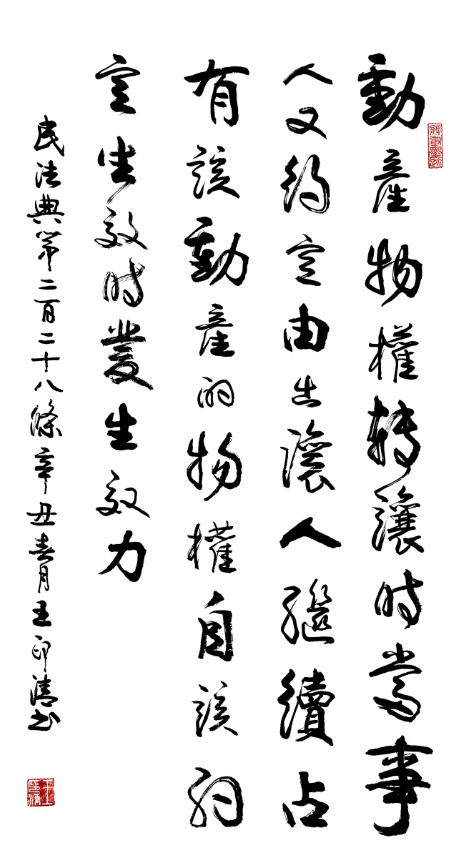 動產物權轉讓時當事
人又約定由出讓人繼續占
有該動產的物權自該約
定生效時發生效力
民法典第二百二十八條辛丑春月王印清书